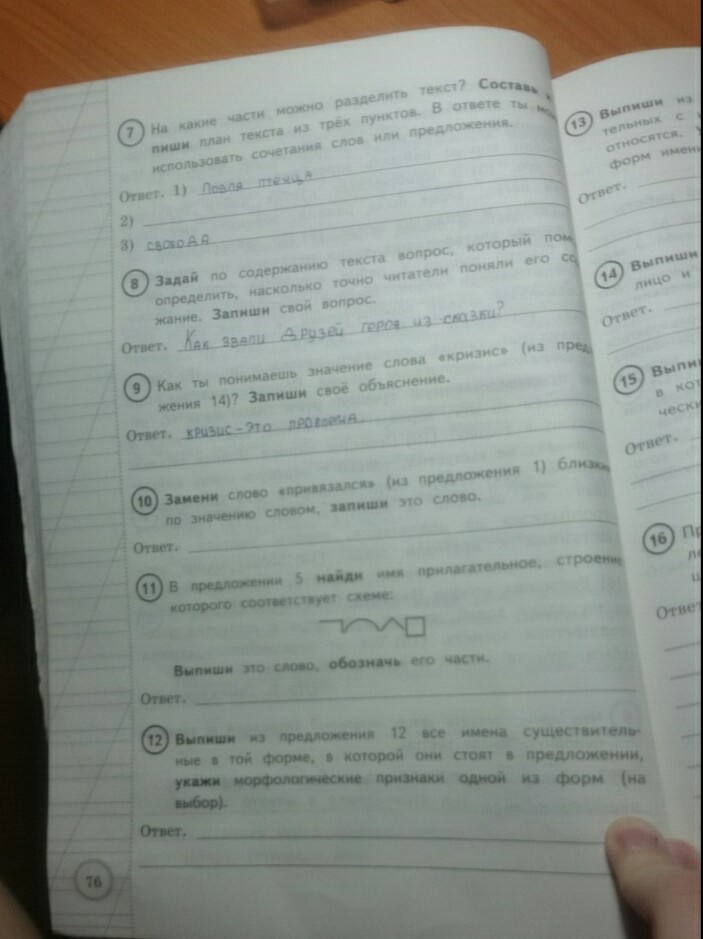 7 На какие части можно разделить текст? Составь
пиши план текста из трёх пунктов. В ответе ты
использовать сочетания слов или предложения.
Ответ. 1) Ловля птенца
2)
3) свобода
8 Задай по содержанию текста вопрос, который пом
определить, насколько точно читатели поняли его со
жание. Запиши свой вопрос.
Ответ. Как звали друзей героя из сказки?
9 Как ты понимаешь значение слова «кризис» (из пред
жения 14)? Запиши своё объяснение.
Ответ. кризис - это
10 Замени слово «привязался» (из предложения 1) близки
по значению словом, запиши это слово.
Ответ.
11 В предложении 5 найди имя прилагательное, строение
которого соответствует схеме:
Выпиши это слово, обозначь его части.
Ответ.
12 Выпиши из предложения 12 все имена существитель-
ные в той форме, в которой они стоят в предложении,
укажи морфологические признаки одной из форм (на
выбор).
Ответ.
76
13 Выпиши из
тельных с
относятся,
форм имен
Ответ.
14 Выпиши
лицо и
Ответ.
15 Выпи
в кот
ческ
Ответ.
16 Пр
Ответ